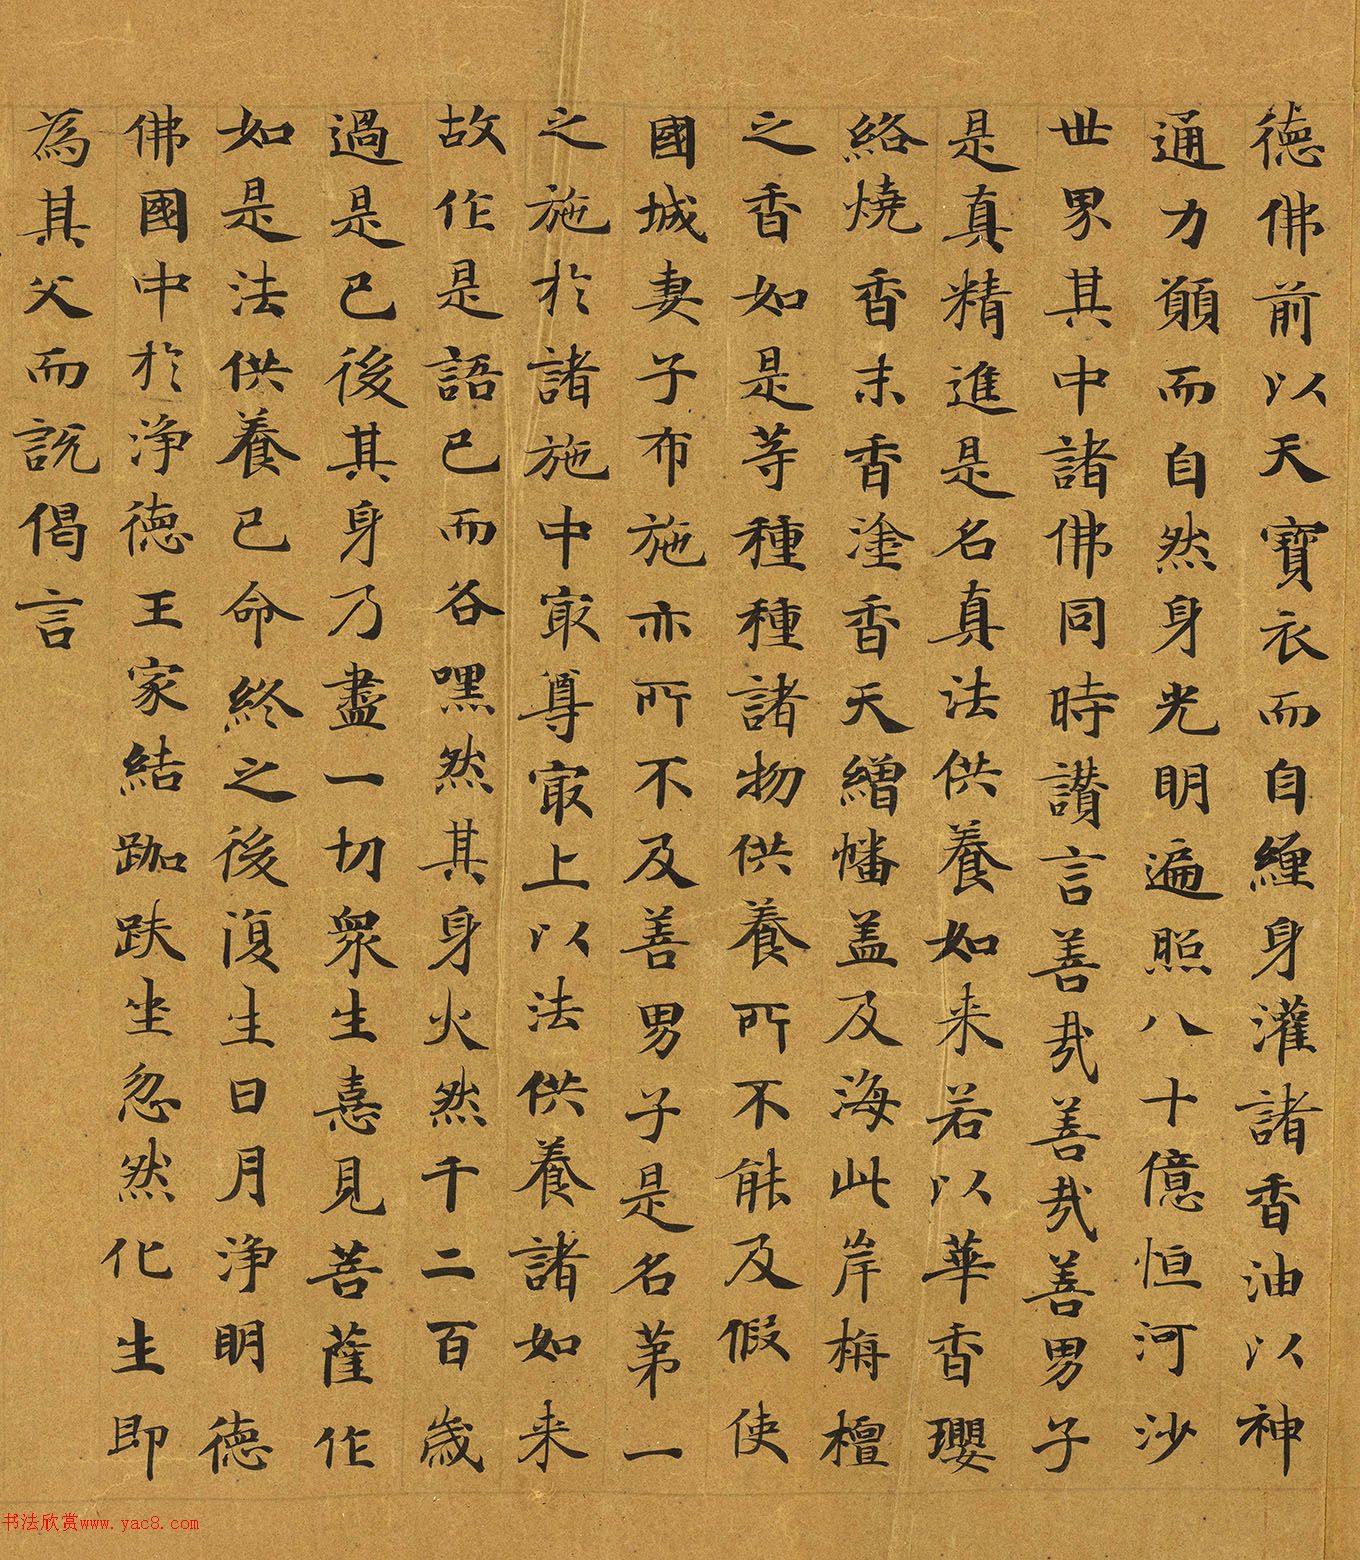 德佛前以天寶衣而自纏身灌諸香油以神
通力願而自然身光明遍照八十億恒河沙
世界其中諸佛同時讃言善㢤善㢤善男子
是真精進是名真法供養如来若以華香瓔
絡燒香末香塗香天繒幡盖及海此岸栴檀
之香如是等種種諸物供養所不能及假使
國城妻子布施亦所不及善男子是名第一
之施於諸施中㝡尊㝡上以法供養諸如来
故作是語已而各嘿然其身火然千二百歲
過是已後其身乃盡一切眾生憙見菩薩作
如是法供養已命終之後復生日月淨明德
佛國中於淨德王家結跏趺坐忽然化生即
為其父而說偈言
书法欣赏www.yac8.com